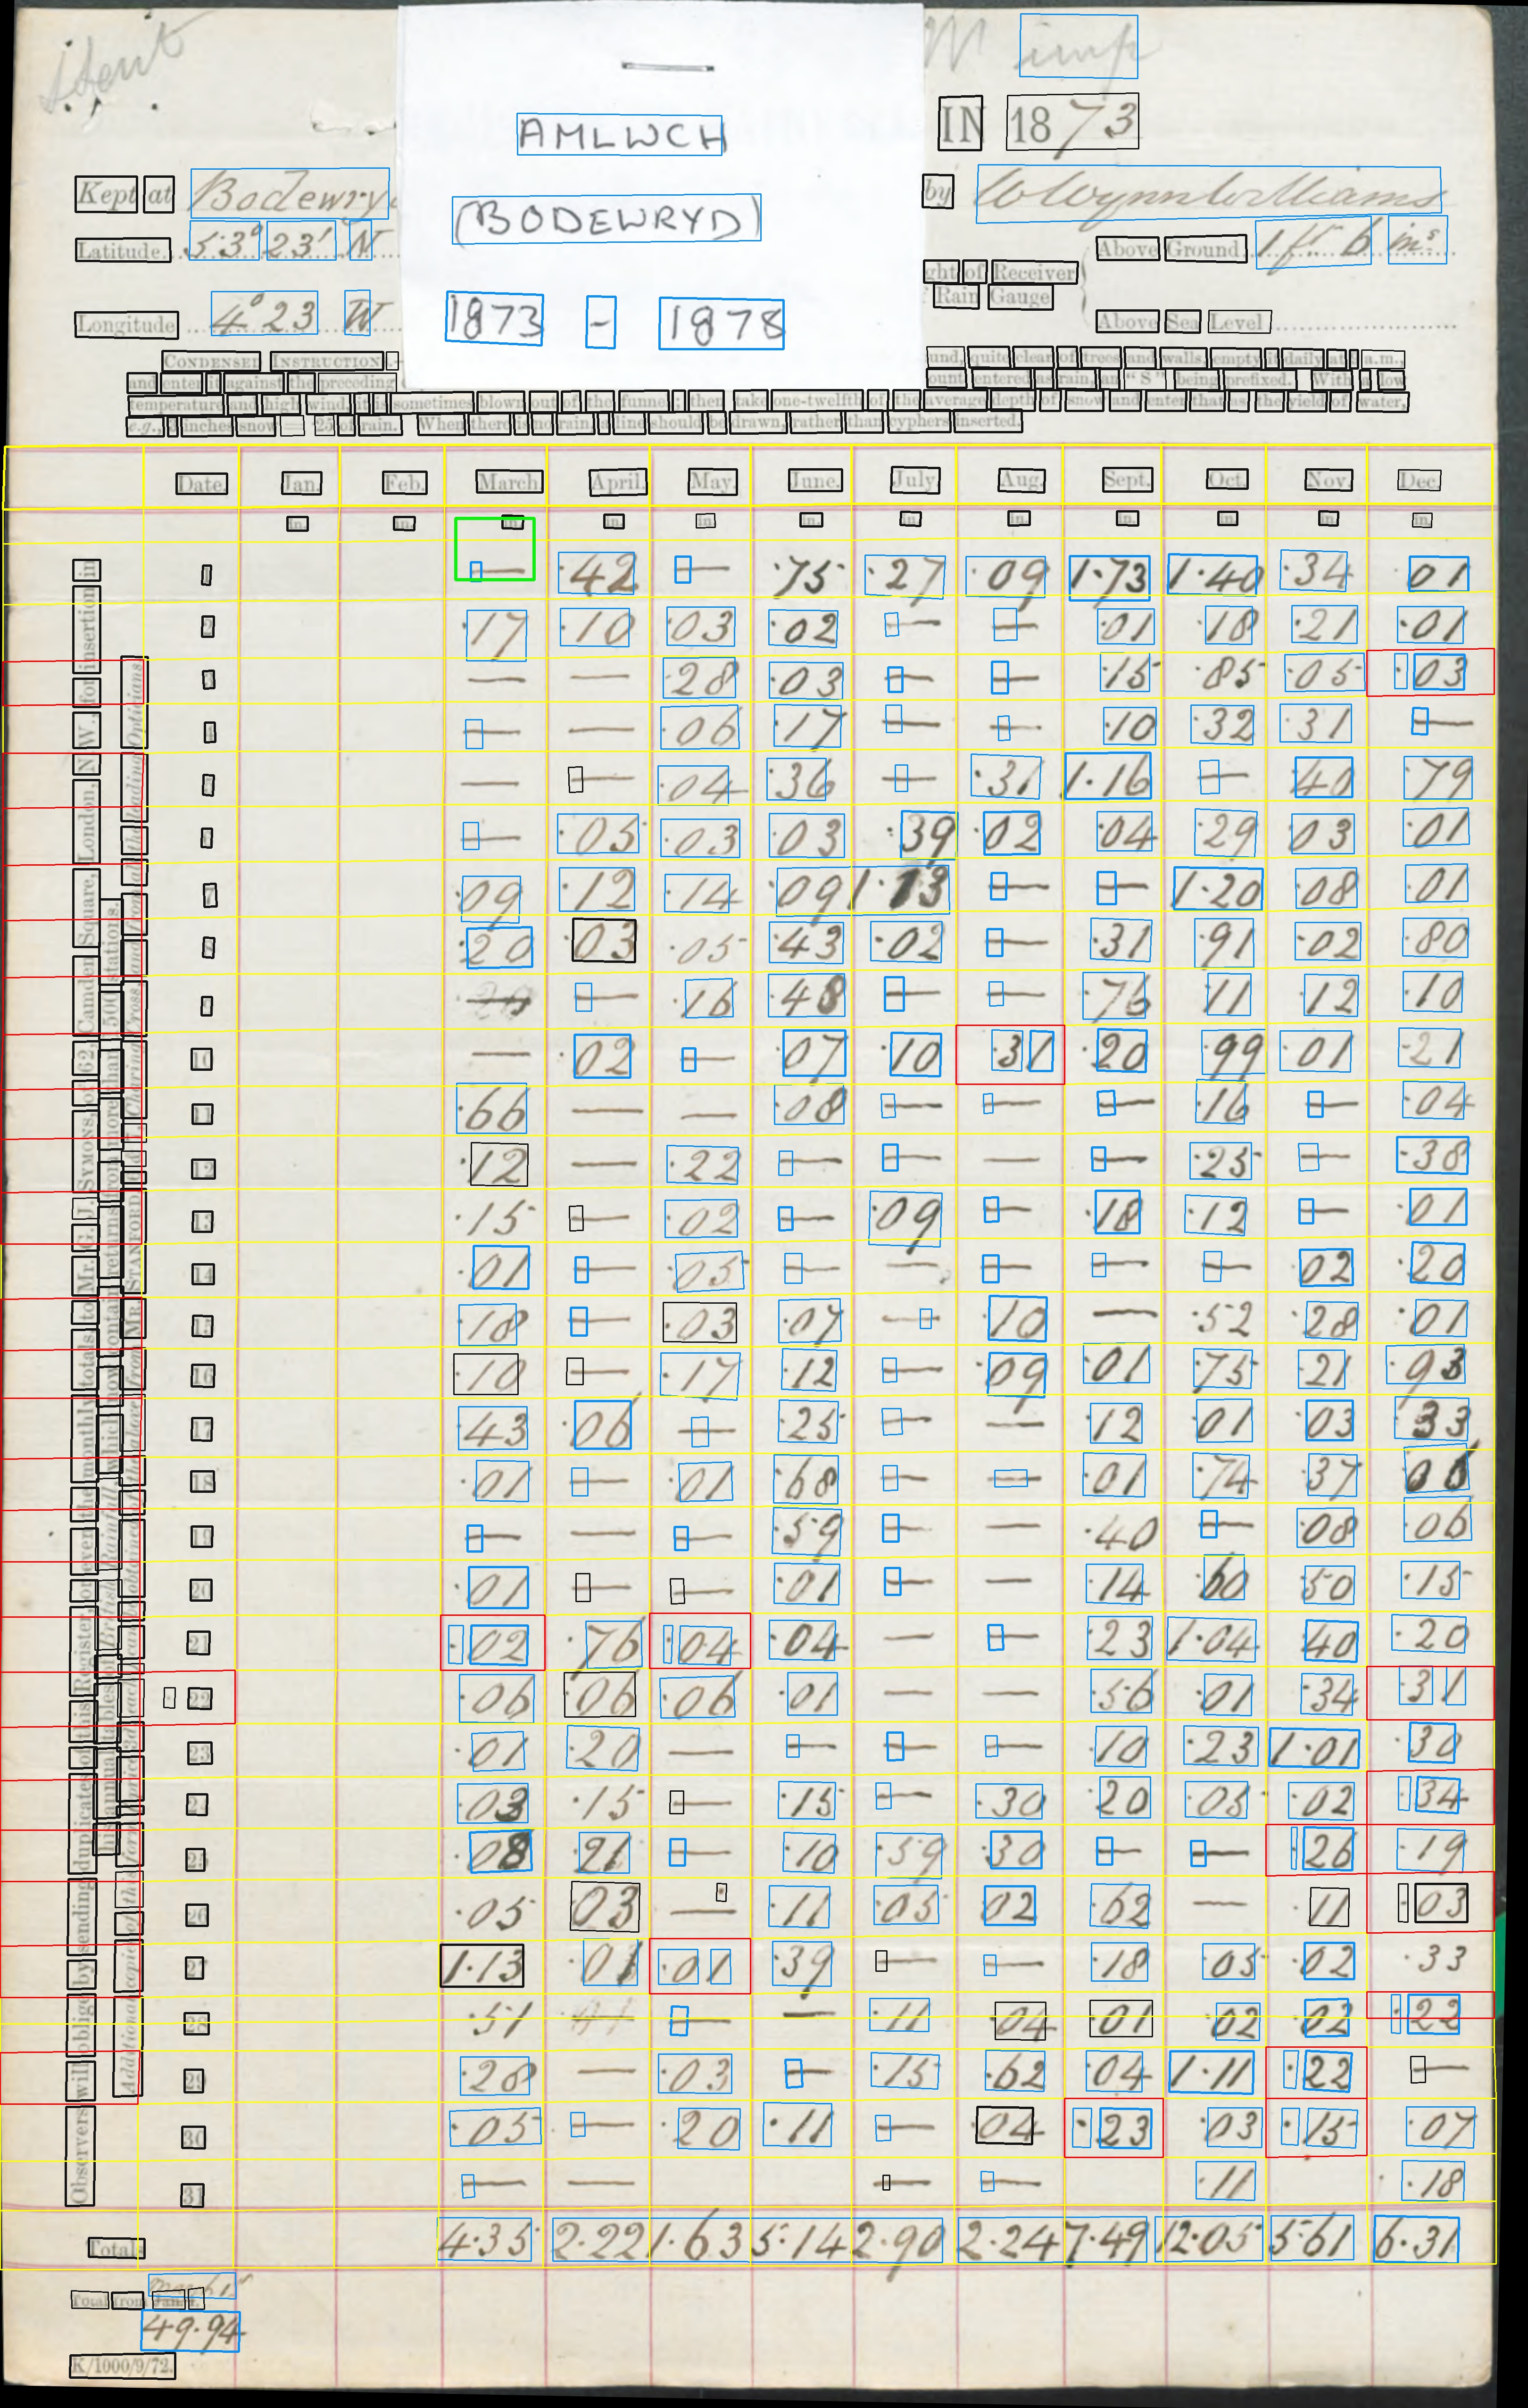 M imp
AMLWCH
IN 1873
Kept at Bodewry
(BODEWRYD)
by W Wynn Williams
Latitude 53° 23' N
Above Ground 1 ft 6 ins
ght of Receiver
Rain Gauge
Longitude 4° 23 W
1873 - 1878
Above Sea Level
CONDENSED INSTRUCTION
und, quite clear of trees and walls, empty it daily at 9 a.m.,
and enter it against the preceding
ount entered as rain, an "S" being prefixed. With a low
temperature and high wind, it is sometimes blown out of the funnel; then take one-twelfth of the average depth of snow and enter that as the yield of water,
e.g., 3 inches snow = ·25 of rain. When there is no rain, a line should be drawn, rather than cyphers inserted.
Date. Jan. Feb. March. April. May. June. July. Aug. Sept. Oct. Nov. Dec.
in. in. in. in. in. in. in. in. in. in. in. in.
1 — ·42 — ·75 ·27 ·09 1·73 1·40 ·34 ·01
2 ·17 ·10 ·03 ·02 — — ·01 ·18 ·21 ·01
3 — — ·28 ·03 — — ·15 ·85 ·05 ·03
4 — — ·06 ·17 — — ·10 ·32 ·31 —
5 — — ·04 ·36 — ·31 1·16 — ·40 ·79
6 — ·05 ·03 ·03 ·39 ·02 ·04 ·29 ·03 ·01
7 ·09 ·12 ·14 ·09 1·13 — — 1·20 ·08 ·01
8 ·20 ·03 ·05 ·43 ·02 — ·31 ·91 ·02 ·80
9 — — ·16 ·48 — — ·76 ·11 ·12 ·10
10 — ·02 — ·07 ·10 ·31 ·20 ·99 ·01 ·21
11 ·66 — — ·08 — — — ·16 — ·04
12 ·12 — ·22 — — — — ·25 — ·38
13 ·15 — ·02 — ·09 — ·18 ·12 — ·01
14 ·01 — ·05 — — — — — ·02 ·20
15 ·18 — ·03 ·07 — ·10 — ·52 ·28 ·01
16 ·10 — ·17 ·12 — ·09 ·01 ·75 ·21 ·93
17 ·43 ·06 — ·25 — — ·12 ·01 ·03 ·33
18 ·01 — ·01 ·68 — — ·01 ·74 ·37 ·06
19 — — — ·59 — — ·40 — ·08 ·06
20 ·01 — — ·01 — — ·14 ·60 ·50 ·15
21 ·02 ·76 ·04 ·04 — — ·23 1·04 ·40 ·20
22 ·06 ·06 ·06 ·01 — — ·56 ·01 ·34 ·31
23 ·01 ·20 — — — — ·10 ·23 1·01 ·30
24 ·03 ·15 — ·15 — ·30 ·20 ·05 ·02 ·34
25 ·08 ·21 — ·10 ·59 ·30 — — ·26 ·19
26 ·05 ·03 — ·11 ·05 ·02 ·62 — ·11 ·03
27 1·13 ·01 ·01 ·39 — — ·18 ·05 ·02 ·33
28 ·51 — — ·11 ·04 ·01 ·02 ·02 ·22
29 ·28 — ·03 — ·15 ·62 ·04 1·11 ·22 —
30 ·05 — ·20 ·11 — ·04 ·23 ·03 ·15 ·07
31 — — — — ·11 ·18
Totals 4·35 2·22 1·63 5·14 2·90 2·24 7·49 12·05 5·61 6·31
Total from Jan. 1. March 1st
49·94
K/1000/9/72.
Observers will oblige by sending duplicates of this Register, or even the monthly totals, to Mr. G. J. SYMONS, of 62, Camden Square, London, N.W., for insertion in
his annual tables of British Rainfall, which now contain returns from more than 1500 stations.
Additional copies of this form, price 3d. each, can be obtained of the above, from MR. STANFORD, 6 & 7, Charing Cross, and from all the leading Opticians.